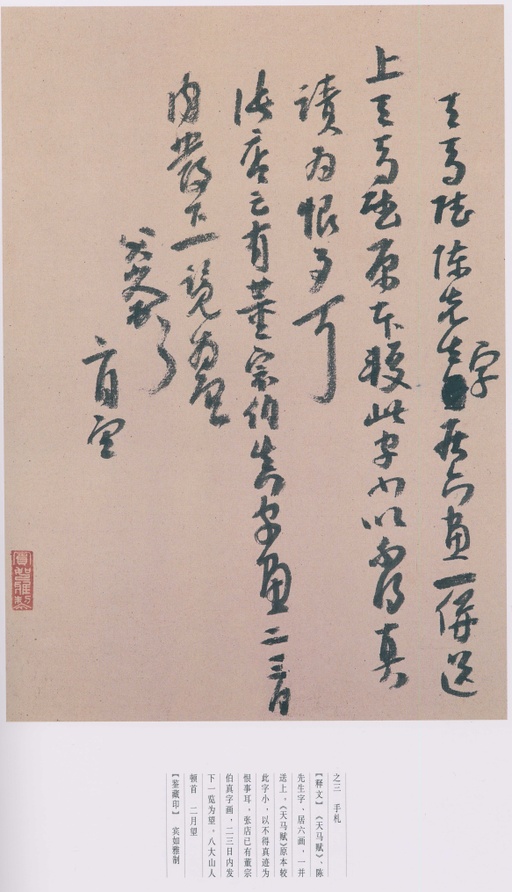 天马赋陈先生
字
居六画一併送
上天马赋原本较此字小以不得真
读为恨事耳
张店已有董宗伯真字画二三日
内发下一览为望
八大山人顿首
二月望
之三 手札
【释文】 《天马赋》、陈
先生字，居六画，一并
送上。《天马赋》原本较
此字小，以不得真迹为
恨事耳，张店已有董宗
伯真字画，二三日内发
下一览为望，八大山人
顿首 二月望
【鉴藏印】 宾如雅制